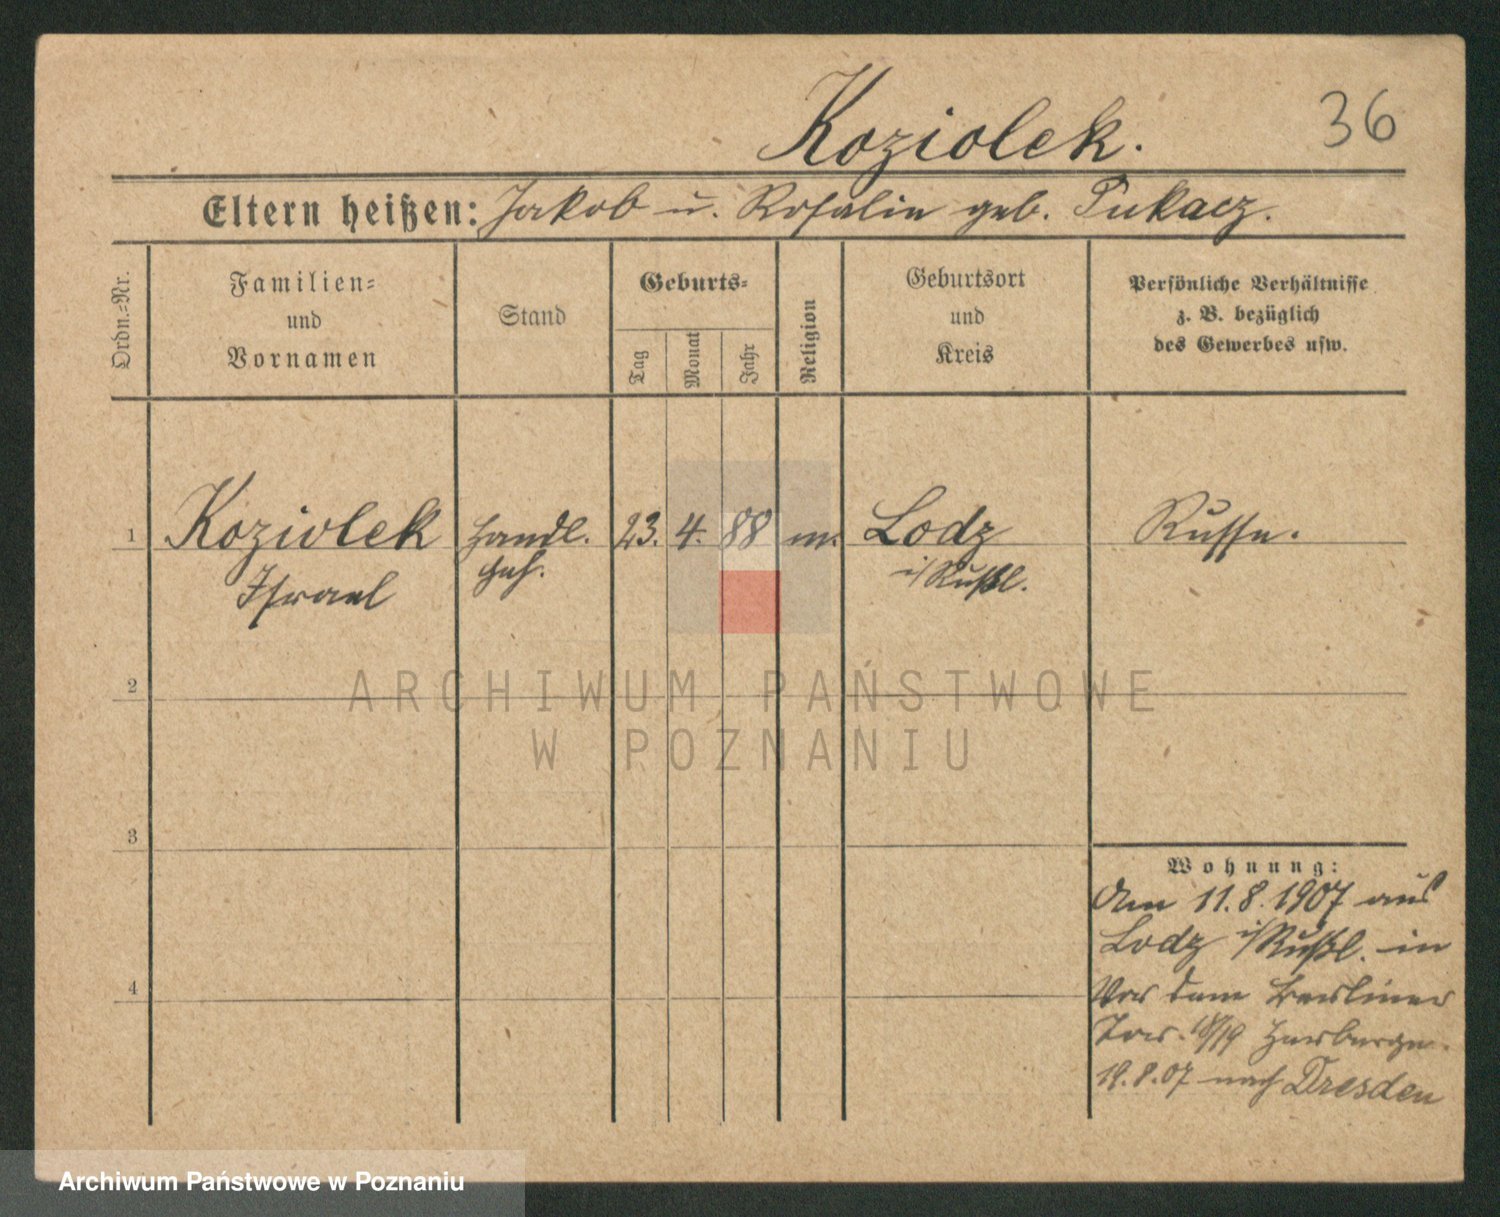 Koziolek. 36
Eltern heißen: Jakob u. Rosalie geb. Pukacz.
Ordn.-Nr.
Familien-
und
Vornamen
Stand
Geburts-
Tag
Monat
Jahr
Religion
Geburtsort
und
Kreis
Persönliche Verhältnisse
z. B. bezüglich
des Gewerbes usw.
1 Koziolek Handl. 23. 4. 88 m. Lodz Russe.
Israel geh. i/Rußl.
2
ARCHIWUM PAŃSTWOWE
W POZNANIU
3
Wohnung:
Am 11.8.1907 aus
Lodz i/Rußl. in
4
Vor dem Berliner
Tor. 18/19 Herberge.
19.8.07 nach Dresden
Archiwum Państwowe w Poznaniu